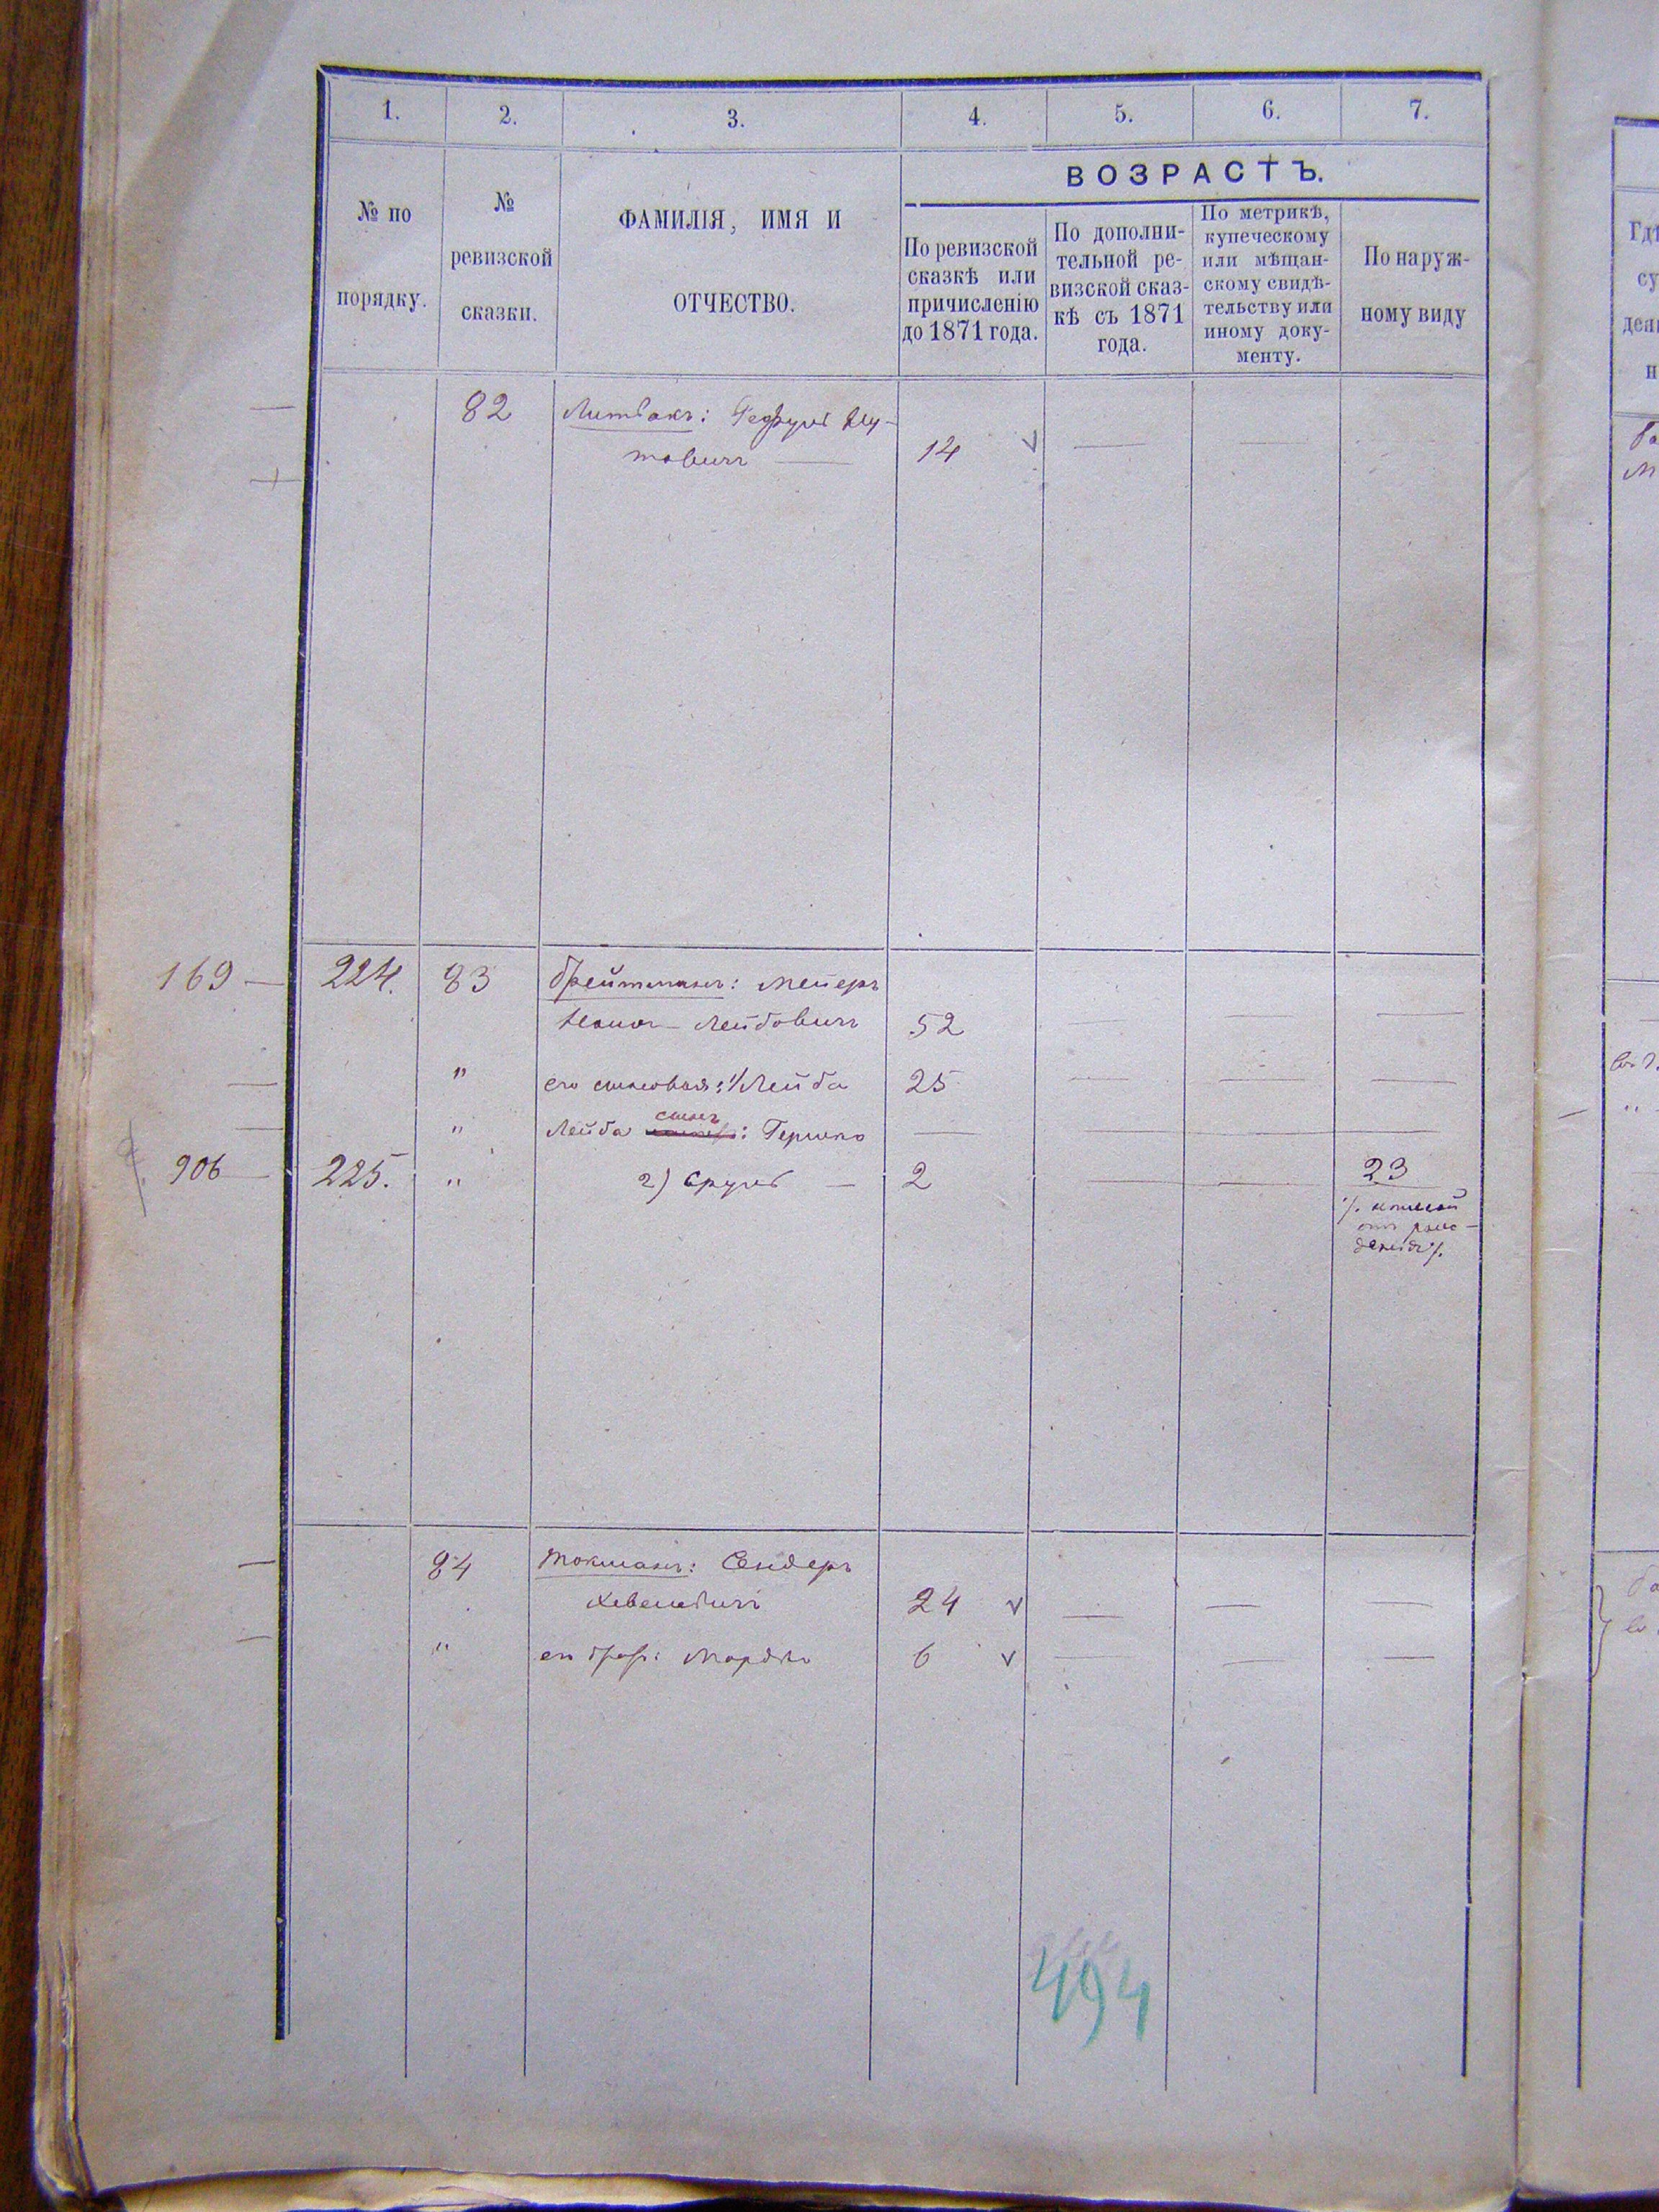 1. 2. 3. 4. 5. 6. 7.
№ по порядку.
№ ревизской сказки.
ФАМИЛІЯ, ИМЯ И ОТЧЕСТВО.
ВОЗРАСТЪ.
По ревизской
сказкѣ или
причисленію
до 1871 года.
По дополни-
тельной ре-
визской сказ-
кѣ съ 1871
года.
По метрикѣ,
купеческому
или мѣщан-
скому свидѣ-
тельству или
иному доку-
менту.
По наруж-
ному виду
82 Литвакъ:
товичъ — 14 v
169 — 224. 83 Брейтманъ: Мейеръ
Лейбовичъ 52
" его сыновья: 1/ Лейба 25
" Лейба сынъ: Гершко
906 — 225. " 2) Сруль — 2 23
отъ рож-
денія
84 Токманъ: Сендеръ
24 v
" его Мордко 6 v
494
Гдѣ